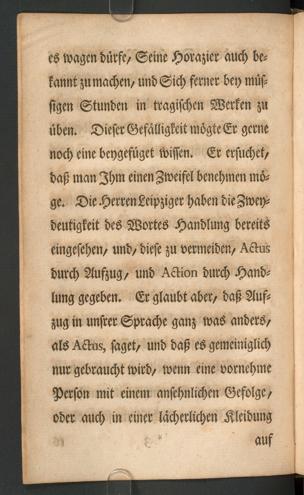 es wagen dürfe, Seine Horazier auch be-
kannt zu machen, und Sich ferner bey müs-
sigen Stunden in tragischen Werken zu
üben. Dieser Gefälligkeit mögte Er gerne
noch eine beygefüget wissen. Er ersuchet,
daß man Ihm einen Zweifel benehmen mö-
ge. Die Herren Leipziger haben die Zwey-
deutigkeit des Wortes Handlung bereits
eingesehen, und, diese zu vermeiden, Actus
durch Aufzug, und Action durch Hand-
lung gegeben. Er glaubt aber, daß Auf-
zug in unsrer Sprache ganz was anders,
als Actus, saget, und daß es gemeiniglich
nur gebraucht wird, wenn eine vornehme
Person mit einem ansehnlichen Gefolge,
oder auch in einer lächerlichen Kleidung
auf